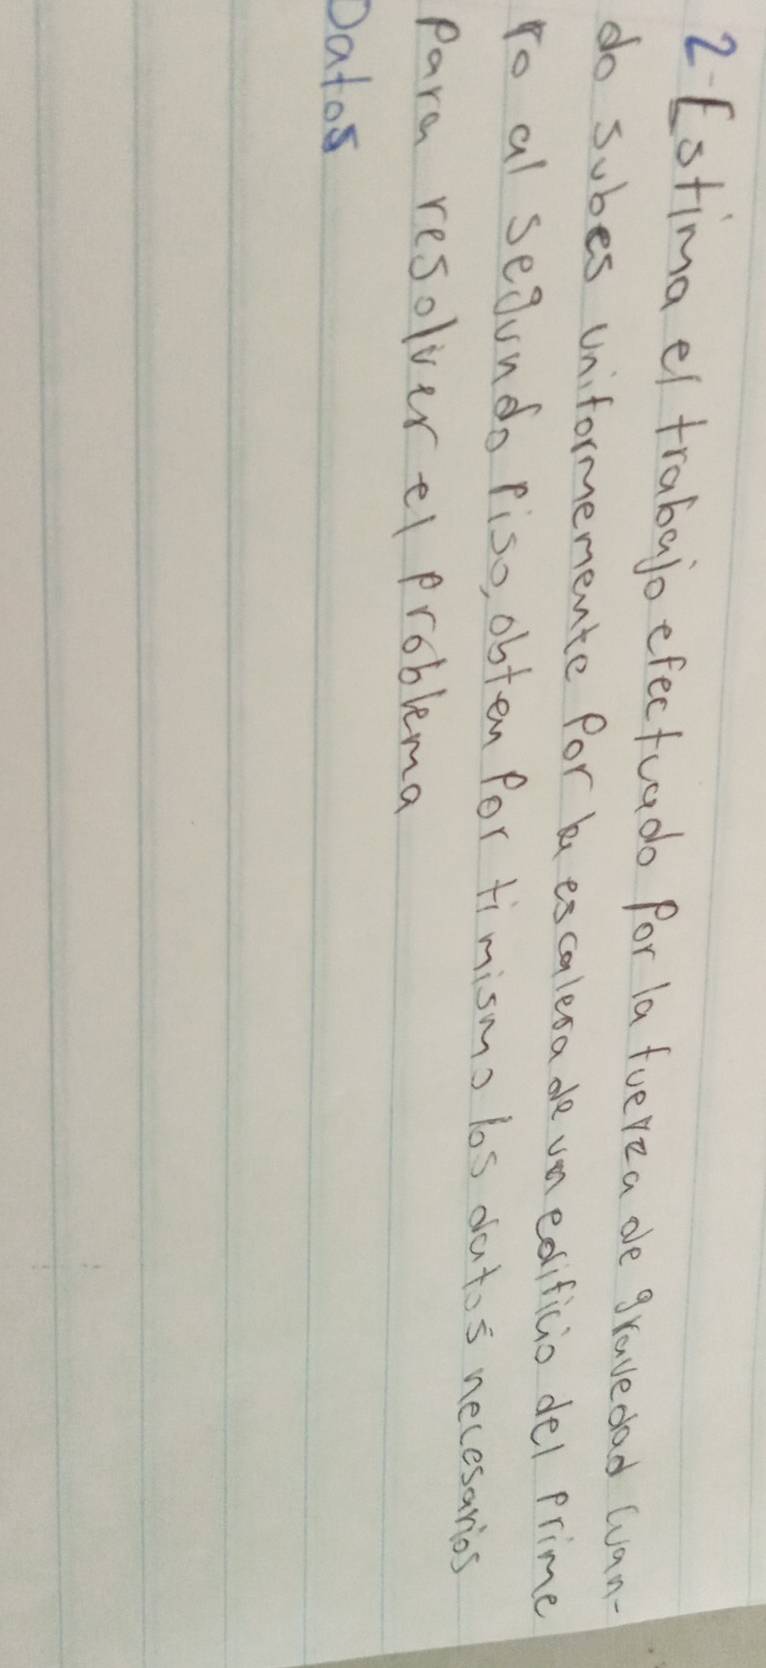 2-Estima el trabajo efectuado por la fuerza de gravedad cuan-
do subes uniformemente por la escalera de un edificio del prime
ro al segundo piso, obten por ti mismo los datos necesarios
para resolver el problema
Datos